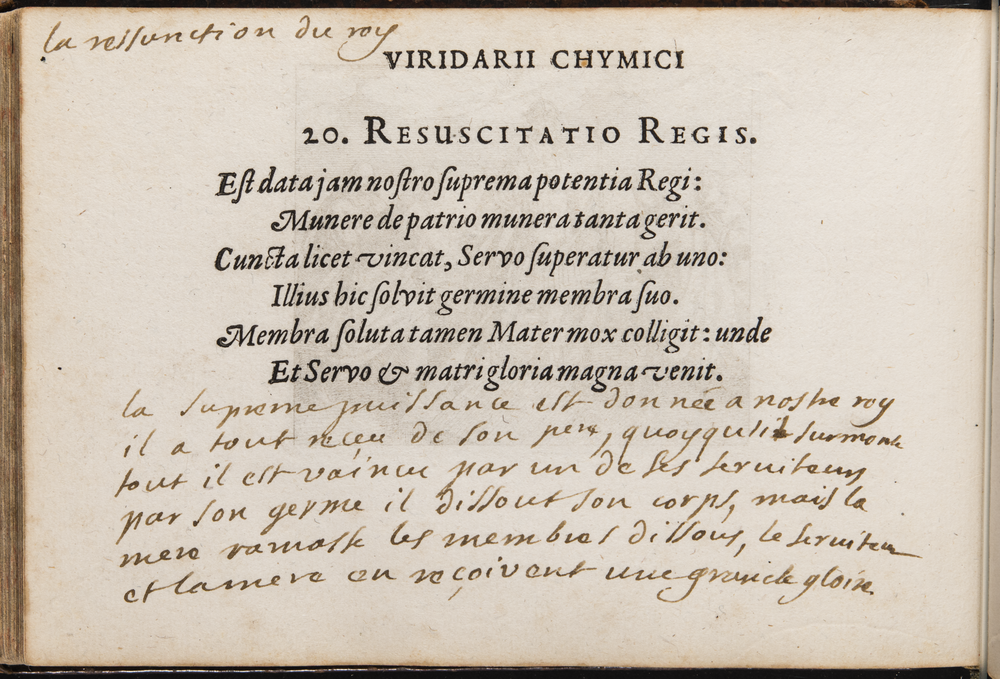 la ressurection du roy
VIRIDARII CHYMICI
20. RESUSCITATIO REGIS.
Est data jam nostro suprema potentia Regi:
Munere de patrio munera tanta gerit.
Cuncta licet vincat, Servo superatur ab uno:
Illius hic solvit germine membra suo.
Membra soluta tamen Mater mox colligit: unde
Et Servo & matri gloria magna venit.
la supreme puissance est donnée a nostre roy
il a tout receu de son pere, quoyqu'il surmonte
tout il est vaincu par un de ses serviteurs
par son germe il dissout son corps, mais la
mere ramasse les membres dissous, le serviteur
et la mere en reçoivent une grande gloire.